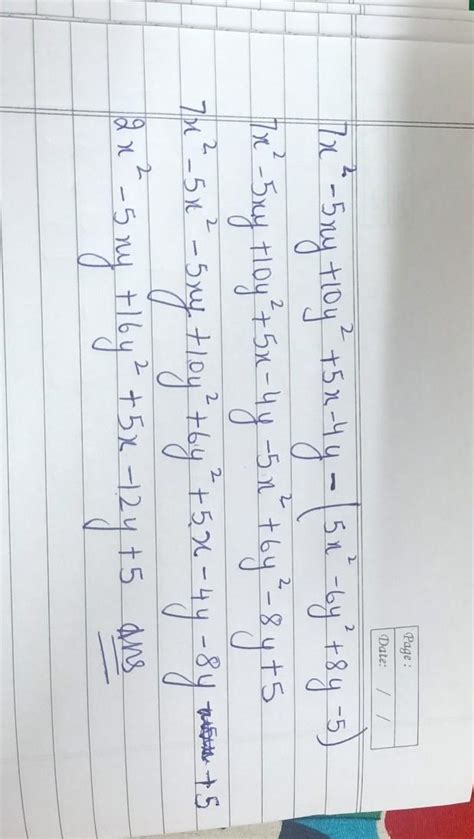 Page:
Date: / /
7x² - 5xy + 10y² + 5x - 4y - (5x² - 6y² + 8y - 5)
7x² - 5xy + 10y² + 5x - 4y - 5x² + 6y² - 8y + 5
7x² - 5x² - 5xy + 10y² + 6y² + 5x - 4y - 8y + 5
2x² - 5xy + 16y² + 5x - 12y + 5 ans